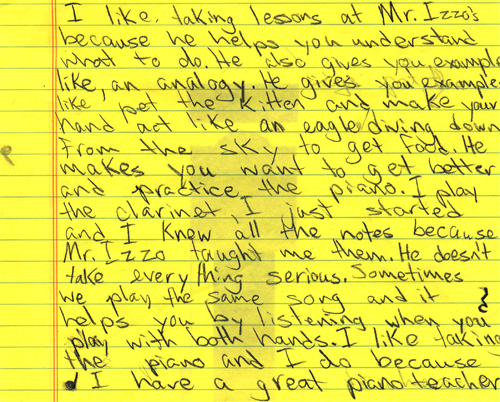 I like. taking lessons at Mr. Izzo's
because he helps you understand
what to do. He also gives you example
like, an analogy. He gives you example
like pet the kitten and make your
hand act like an eagle diving down
from the sky to get food. He
makes you want to get better
and practice the piano. I play
the clarinet, I just started
and I know all the notes because
Mr. Izzo taught me them. He doesn't
take everything serious. Sometimes
we play the same song and it
helps you by listening when you
play with both hands. I like taking
the piano and I do because
I have a great piano teacher